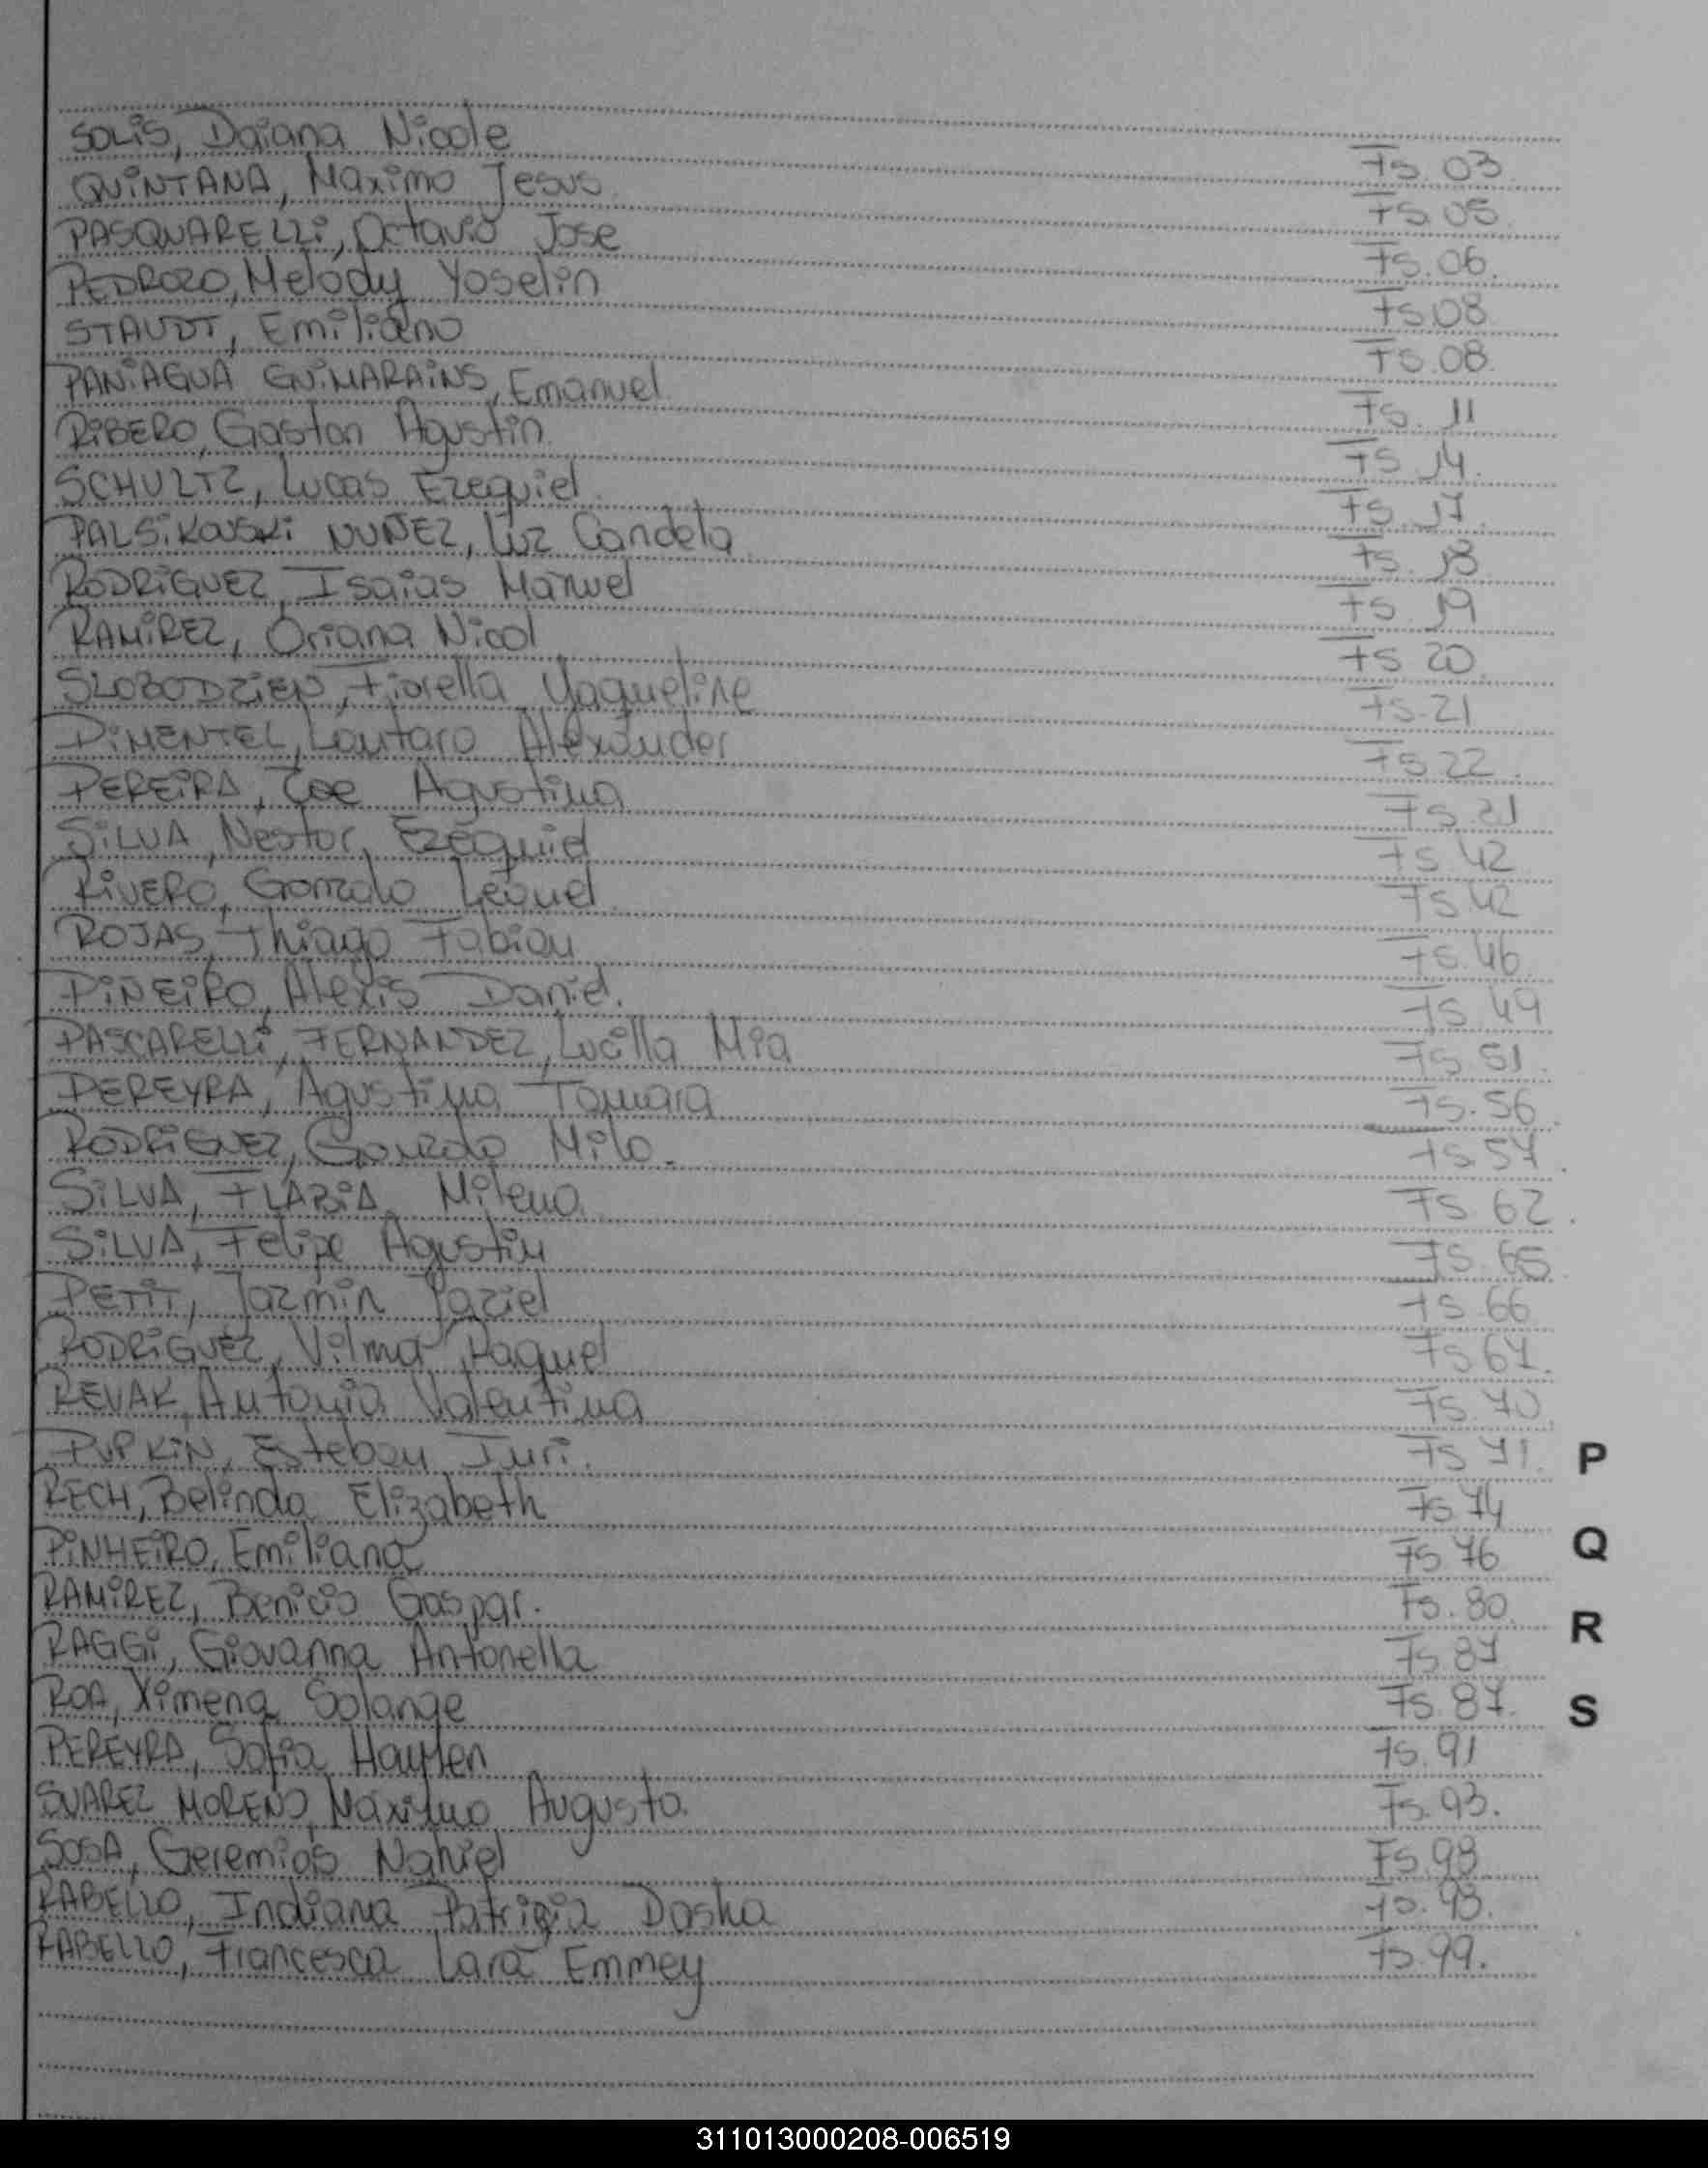 SOLIS, Daiana Nicole Fs. 03
QUINTANA, Maximo Jesus Fs. 05
PASQUARELLI, Octavio Jose Fs. 06
PEDROZO, Melody Yoselin Fs. 08
STAUDT, Emiliano Fs. 08
PANIAGUA GUIMARAINS, Emanuel Fs. 11
RIBERO, Gaston Agustin Fs. 14
SCHULTZ, Lucas Ezequiel Fs. 17
PALSIKOUSKI NUÑEZ, Luz Candela Fs. 18
RODRIGUEZ, Isaias Manuel Fs. 19
RAMIREZ, Oriana Nicol Fs 20
SLOBODZIEN, Fiorella Yaqueline Fs. 21
PIMENTEL, Lautaro Alexander Fs 22
PEREIRA, Zoe Agustina Fs. 21
SILVA, Nestor, Ezequiel Fs 42
RIVERO, Gonzalo Leonel Fs 42
ROJAS, Thiago Fabian Fs. 46
PIÑEIRO, Alexis Daniel. Fs. 49
PASCARELLI, FERNANDEZ, Lucilla Mia Fs. 51
PEREYRA, Agustina Tamara Fs. 56
RODRIGUEZ, Gonzalo Milo. Fs. 57
SILVA, FLABIA Milena Fs. 62
SILVA, Felipe Agustin Fs. 65
PETIT, Jazmin Paziel Fs. 66
RODRIGUEZ, Vilma Raquel Fs 67
REVAK, Antonia Valentina Fs. 70
PUPKIN, Esteban Iuri. Fs 71. P
RECH, Belinda Elizabeth Fs. 74
PINHEIRO, Emiliana Fs. 76 Q
RAMIREZ, Benicio Gaspar. Fs. 80
RAGGI, Giovanna Antonella Fs. 87 R
ROA, Ximena Solange Fs. 87. S
PEREYRA, Sofia Haylen Fs. 91
SUAREZ MORENO, Maximo Augusto. Fs. 93.
SOSA, Geremias Nahiel Fs. 98
RABELLO, Indiana Patricia Dasha Fs. 98.
RABELLO, Francesca Lara Emmey Fs. 99.
311013000208-006519